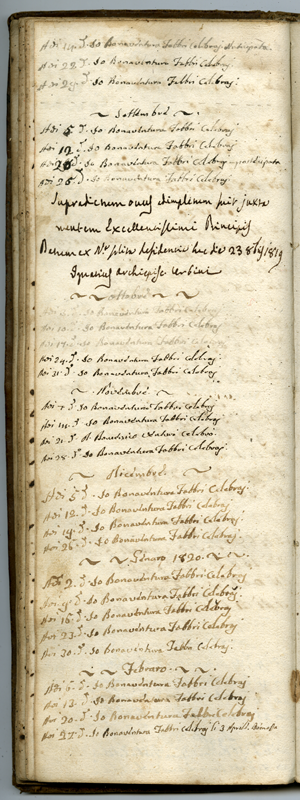 Adi 15 d.º Io Bonaventura Fabbri Celebraj Anticipata
Adi 22 d.º Io Bonaventura Fabbri Celebraj
Adi 29 d.º Io Bonaventura Fabbri Celebraj
Settembre
Adi 5 d.º Io Bonaventura Fabbri Celebraj
Adi 12 d.º Io Bonaventura Fabbri Celebraj
Adi 20 d.º Io Bonaventura Fabbri Celebraj
Adi 26 d.º Io Bonaventura Fabbri Celebraj
Supradictum onus adimpletum fuit juxta
mentem Excellentissimi Principis
hac die 23 8bris 1819
Ignatius Archiepisc. Urbini
Ottobre
Io Bonaventura Fabbri Celebraj
Adi 10 d.º Io Bonaventura Fabbri Celebraj
Adi 17 d.º Io Bonaventura Fabbri Celebraj
Adi 24 d.º Io Bonaventura Fabbri Celebraj
Adi 31 d.º Io Bonaventura Fabbri Celebraj
Novembre
Adi 7 d.º Io Bonaventura Fabbri Celebraj
Adi 14 d.º Io Bonaventura Fabbri Celebraj
Adi 21 d.º
Adi 28 d.º Io Bonaventura Fabbri Celebraj
Dicembre
Adi 5 d.º Io Bonaventura Fabbri Celebraj
Adi 12 d.º Io Bonaventura Fabbri Celebraj
Adi 19 d.º Io Bonaventura Fabbri Celebraj
Adi 26 d.º Io Bonaventura Fabbri Celebraj
Genaro 1820
Adi 2 d.º Io Bonaventura Fabbri Celebraj
Adi 9 d.º Io Bonaventura Fabbri Celebraj
Adi 16 d.º Io Bonaventura Fabbri Celebraj
Adi 23 d.º Io Bonaventura Fabbri Celebraj
Adi 30 d.º Io Bonaventura Fabbri Celebraj
Febraro
Adi 6 d.º Io Bonaventura Fabbri Celebraj
Adi 13 d.º Io Bonaventura Fabbri Celebraj
Adi 20 d.º Io Bonaventura Fabbri Celebraj
Adi 27 d.º Io Bonaventura Fabbri Celebraj li 3 Aprile